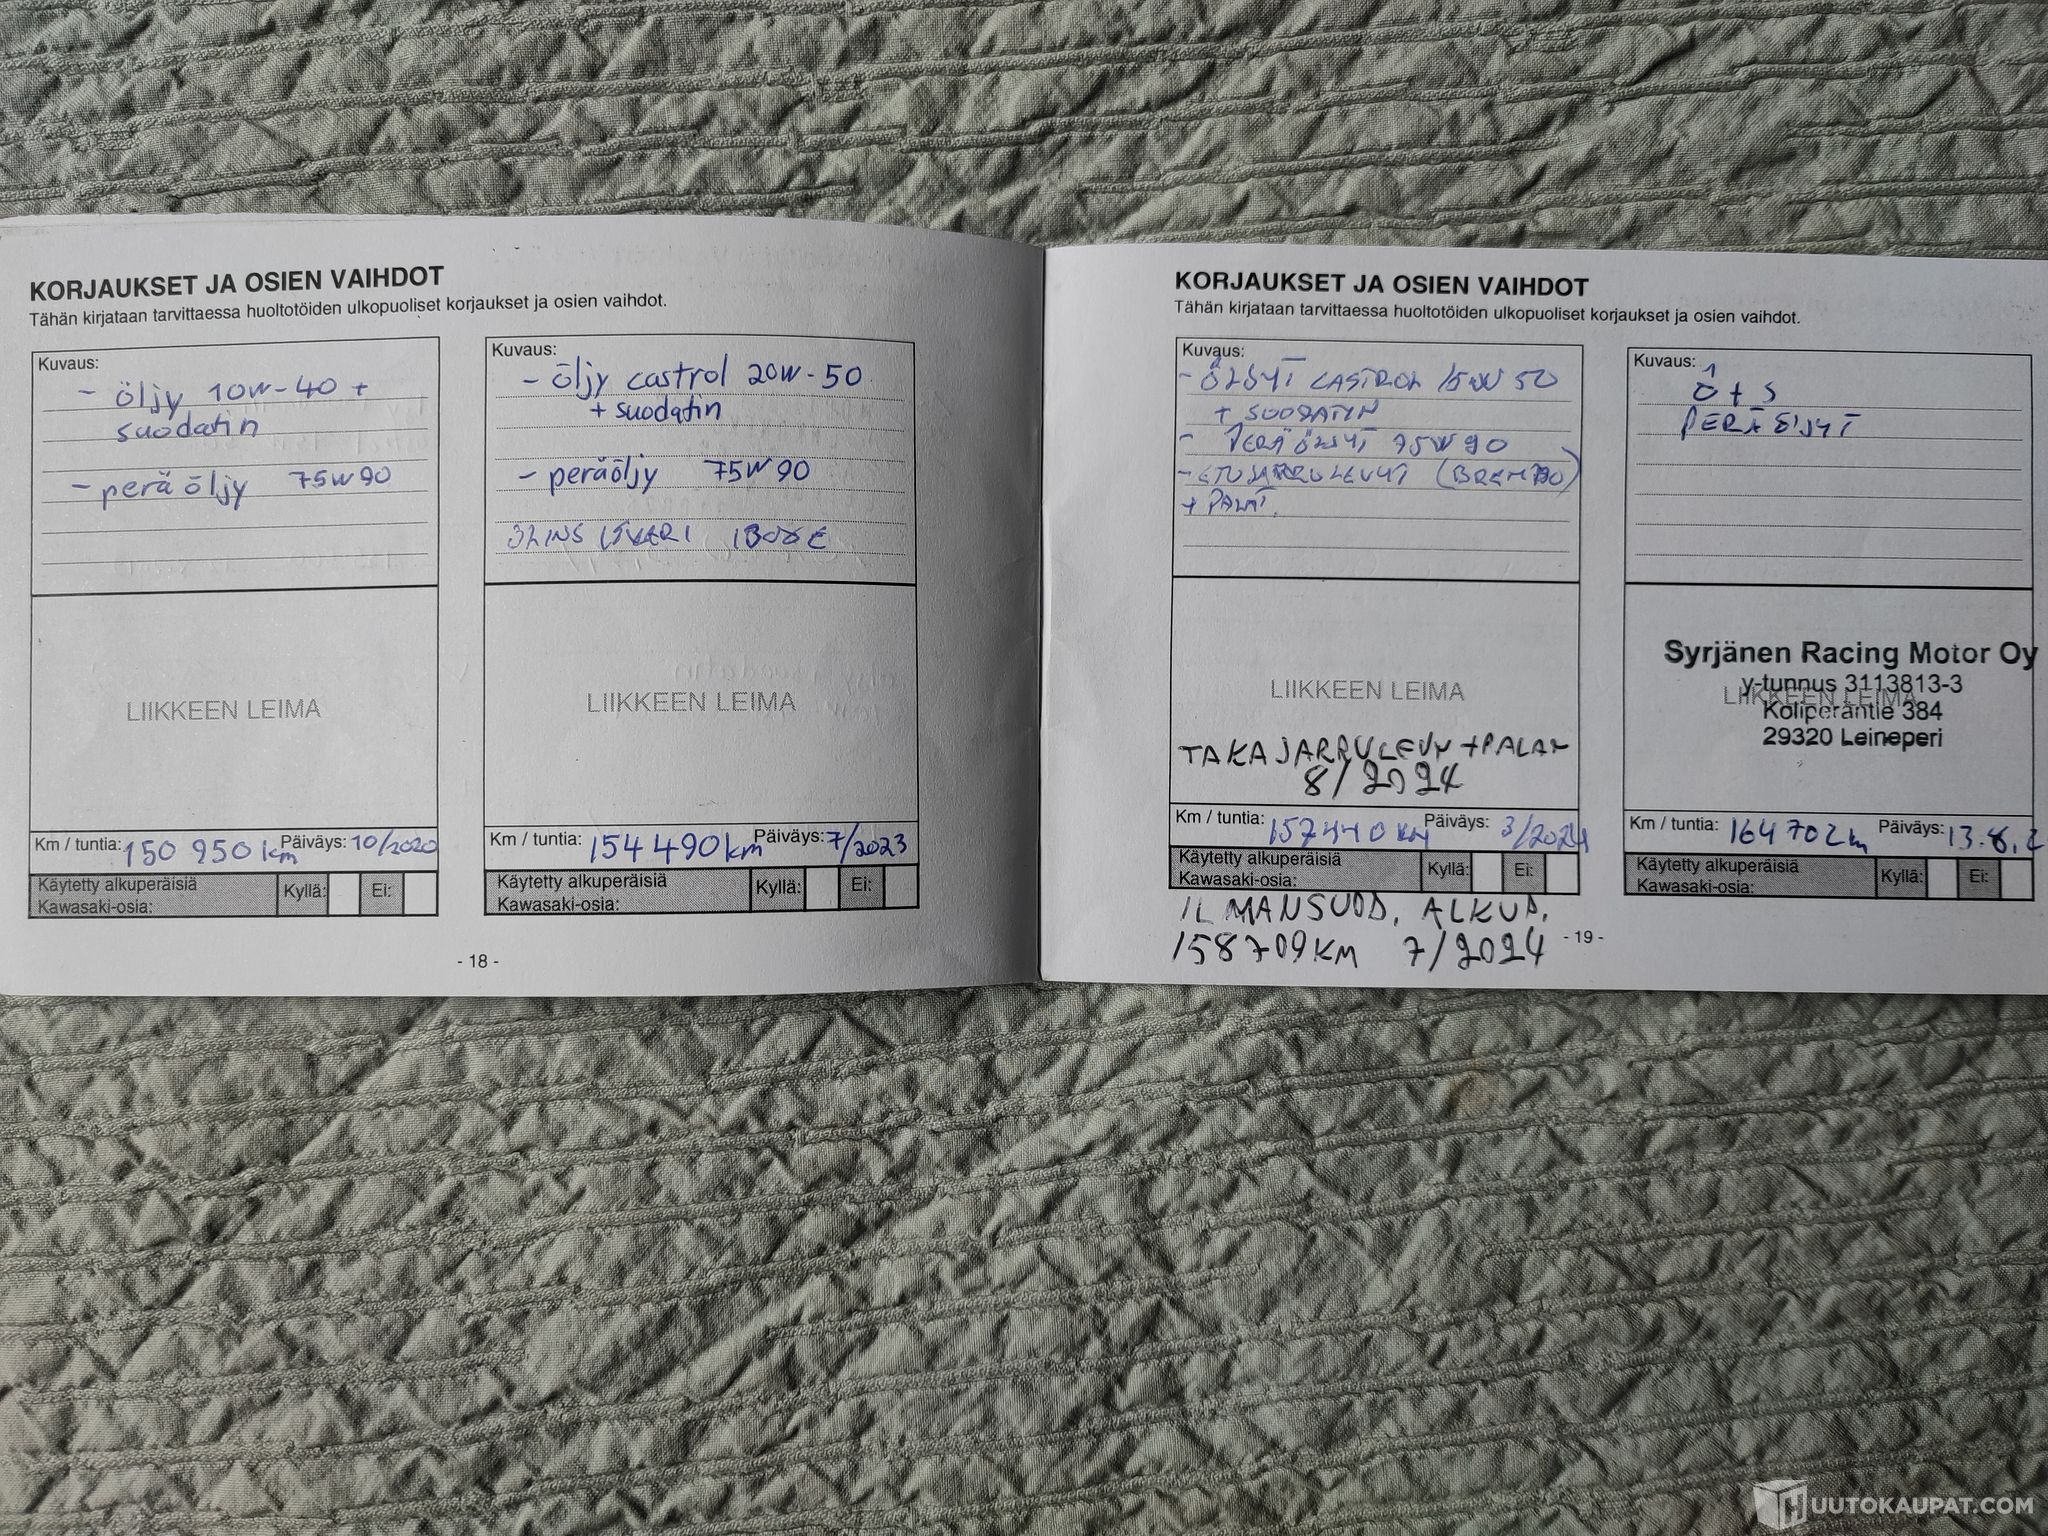 KORJAUKSET JA OSIEN VAIHDOT
Tähän kirjataan tarvittaessa huoltotöiden ulkopuoliset korjaukset ja osien vaihdot.
Kuvaus:
- öljy 10W-40 +
suodatin
- perä öljy 75W90
LIIKKEEN LEIMA
Km / tuntia: 150 950 km Päiväys: 10/2020
Käytetty alkuperäisiä
Kawasaki-osia: Kyllä: Ei:
Kuvaus:
- öljy castrol 20W-50
+ suodatin
- peräöljy 75W90
LIIKKEEN LEIMA
Km / tuntia: 154 490 km Päiväys: 7/2023
Käytetty alkuperäisiä
Kawasaki-osia: Kyllä: Ei:
- 18 -
KORJAUKSET JA OSIEN VAIHDOT
Tähän kirjataan tarvittaessa huoltotöiden ulkopuoliset korjaukset ja osien vaihdot.
Kuvaus:
- ÖLJYT CASTROL 15W 50
+ SUODATIN
- PERÄÖLJYT 75W90
- ETUJARRULEVYT (BREMBO)
+ PALAT.
LIIKKEEN LEIMA
TAKAJARRULEVY + PALAT
8/2024
Km / tuntia: 157440 KM Päiväys: 3/2024
Käytetty alkuperäisiä
Kawasaki-osia: Kyllä: Ei:
ILMANSUOD. ALKUP.
158709KM 7/2024
Kuvaus:
Ö + S
PERÄÖLJYT
LIIKKEEN LEIMA
Syrjänen Racing Motor Oy
y-tunnus 3113813-3
Koliperäntie 384
29320 Leineperi
Km / tuntia: 164 702 Päiväys: 13.6.2
Käytetty alkuperäisiä
Kawasaki-osia: Kyllä: Ei:
- 19 -
HUUTOKAUPAT.COM